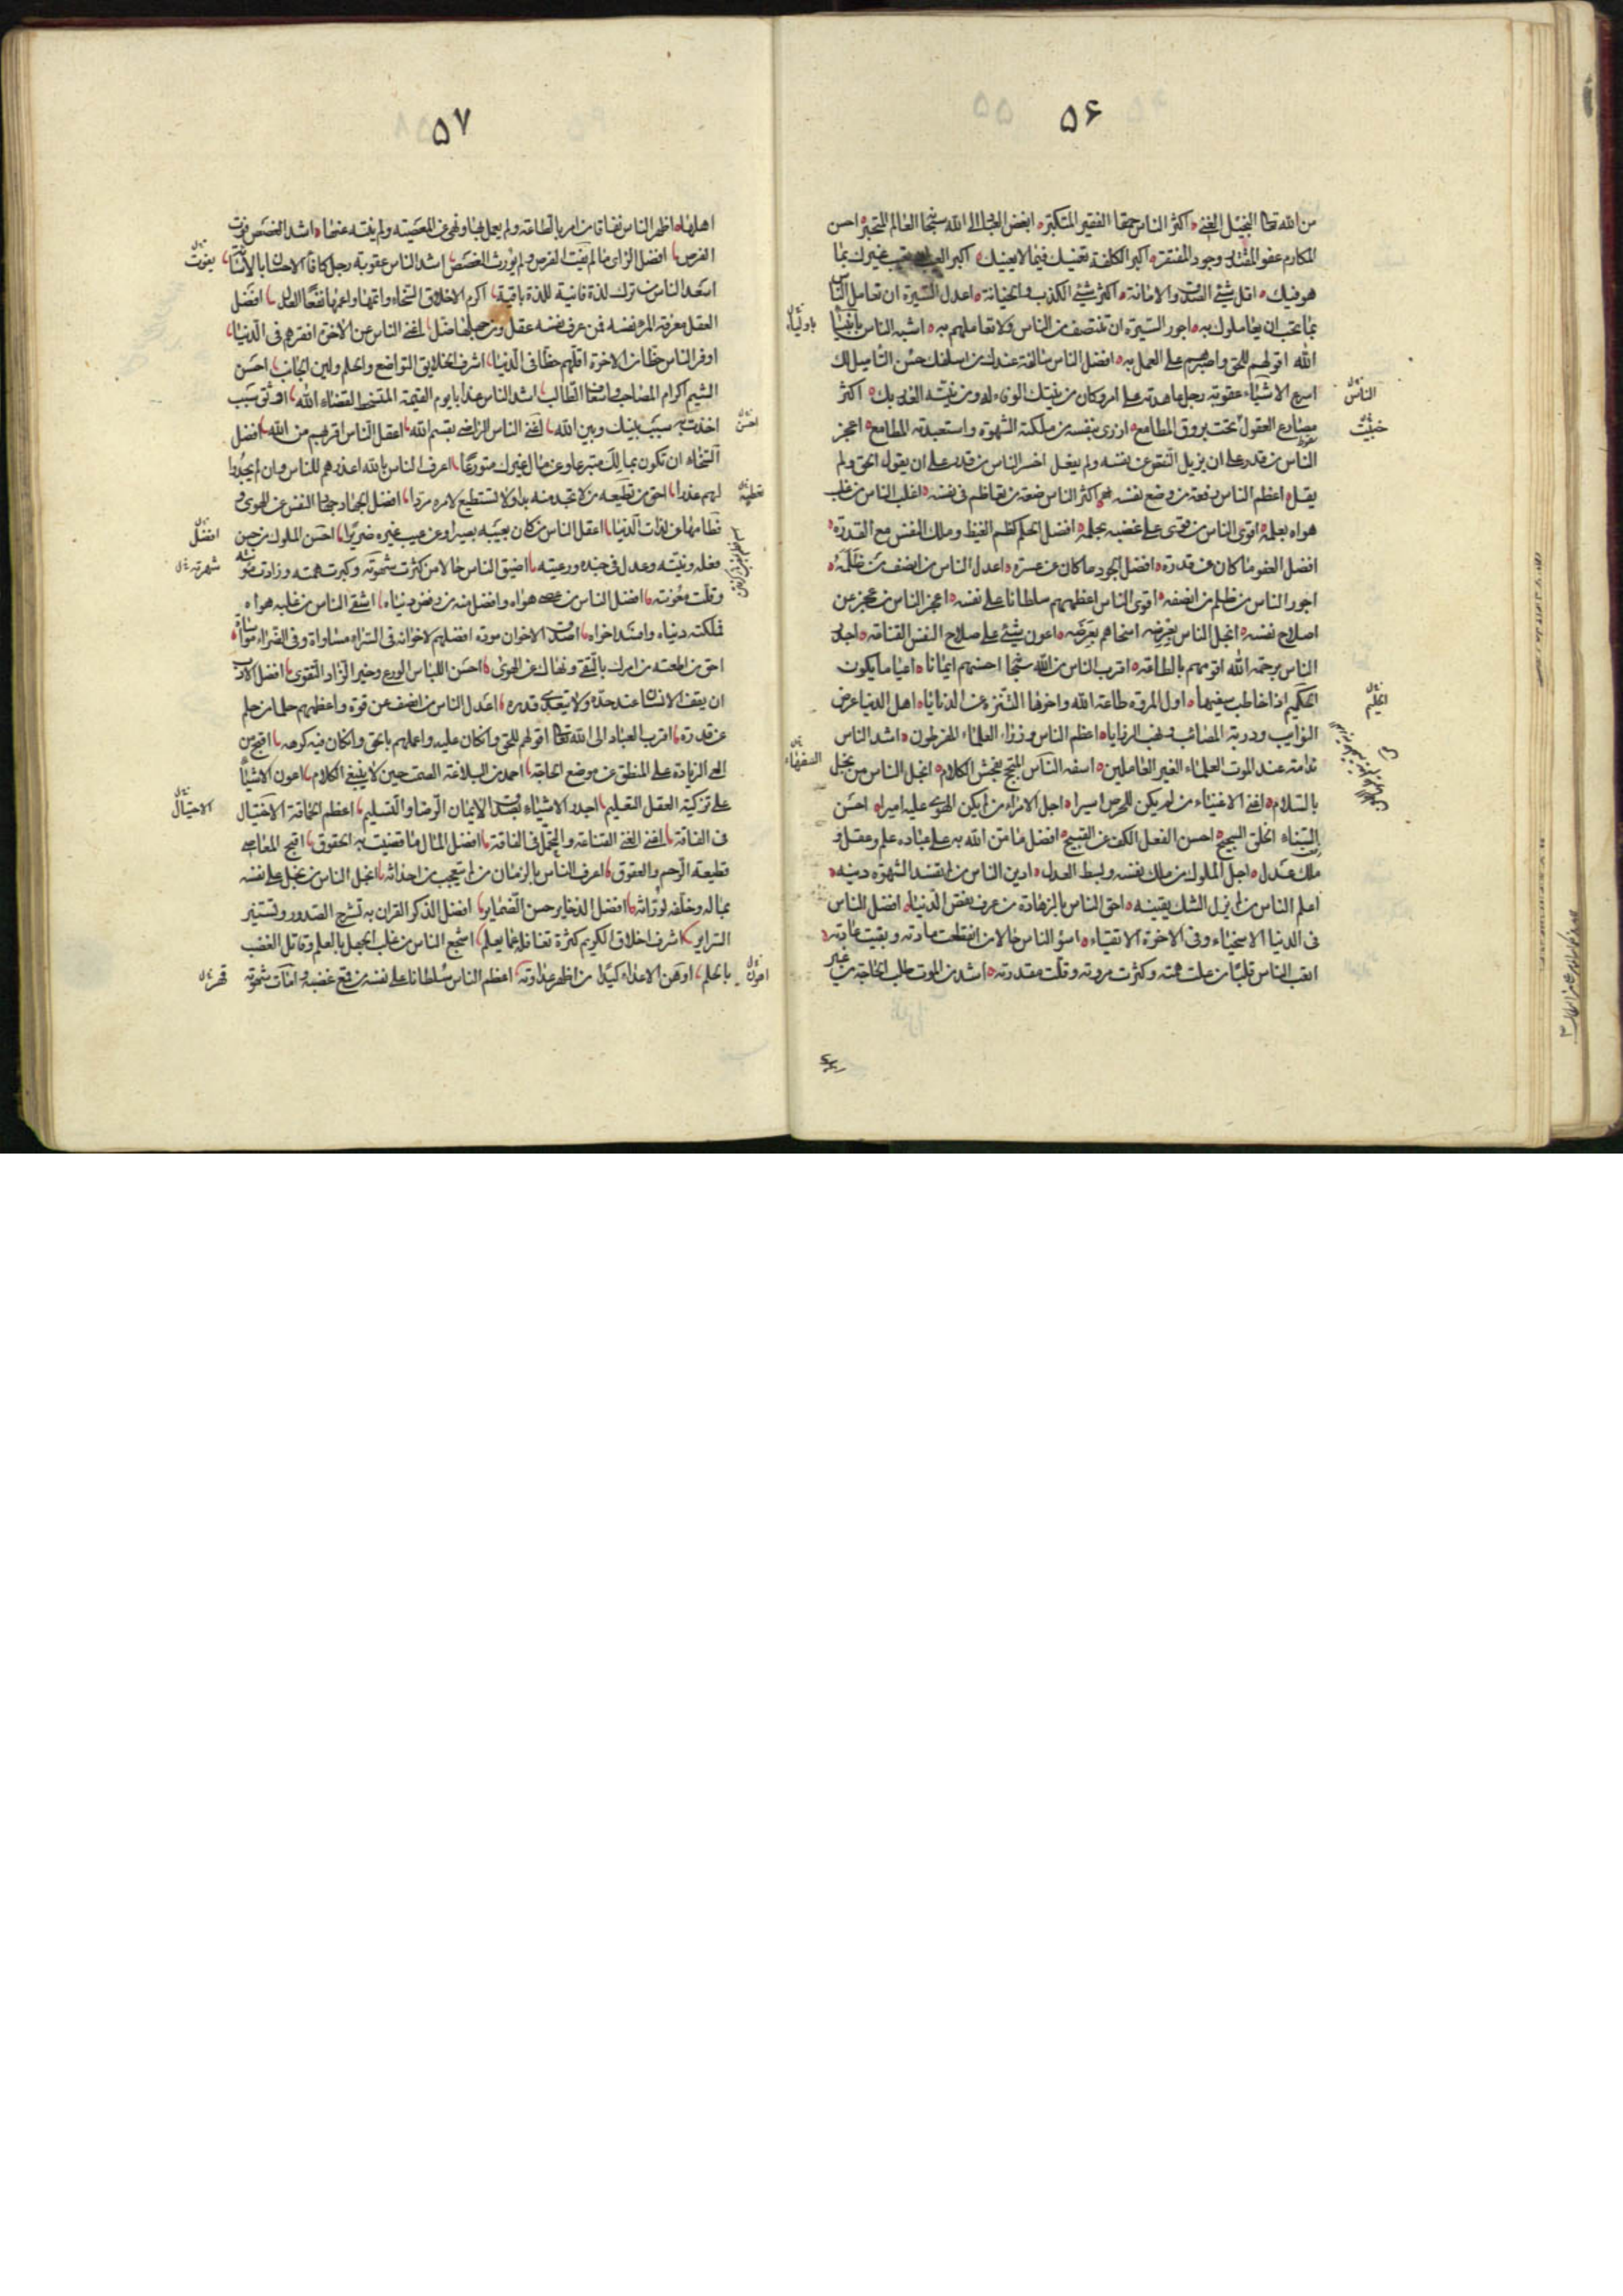 ۵۶
من الله تعالى البخيل الغني اكثر الناس حمقا الفقير المتكبر ابغض العباد الى الله سبحانه العالم المتجبر احسن
المكارم عفو المقتدر وجود المفتقر اكبر الكلفة تعنيك فيما لا يعنيك اكبر العيب ان تعيب غيرك بما
هو فيك اقل شئ الصدق والامانة اكثر شئ الكذب والخيانة اعدل السيرة ان تعامل الناس
بما تحب ان يعاملوك به اجور السيرة ان تنتصف من الناس ولا تعاملهم به اشبه الناس بانبياء
الله اقولهم للحق واصبرهم على العمل به افضل الناس سالفة عندك من اسلفك حسن التاميل لك
اسرع الاشياء عقوبة رجل عاهدته على امر وكان من نيتك الوفاء له ومن نيته الغدر بك اكثر
مصارع العقول تحت بروق المطامع ازرى بنفسه من ملكته الشهوة واستعبدته المطامع اعجز
الناس من قدر على ان يزيل النقص عن نفسه ولم يفعل اخسر الناس من قدر على ان يقول الحق ولم
يقل اعظم الناس رفعة من وضع نفسه اكثر الناس ضعة من تعاظم في نفسه اغلب الناس من غلب
هواه بعلمه اقوى الناس من قوى على غضبه بحلمه افضل الحلم كظم الغيظ وملك النفس مع القدرة
افضل العفو ما كان عن قدرة افضل الجود ما كان عن عسرة اعدل الناس من انصف من ظلمه
اجور الناس من ظلم من انصفه اقوى الناس اعظمهم سلطانا على نفسه اعجز الناس من عجز عن
اصلاح نفسه ابخل الناس بعرضه اسخاهم بعرضه اعون شئ على صلاح النفس القناعة اجدر
الناس برحمة الله اقومهم بالطاعة اقرب الناس من الله سبحانه احسنهم ايمانا اعيا ما يكون
الحكيم اذا خاطب سفيها اول المروة طاعة الله واخرها التنزه عن الدنايا اهل الدنيا غرض
النوايب ودرية المصائب ونهب الرزايا اعظم الناس وزرا العلماء المفرطون اشد الناس
ندامة عند الموت العلماء الغير العاملين اسفه الناس المتبجح بفحش الكلام ابخل الناس من بخل
بالسلام اغنى الاغنياء من لم يكن للحرص اسيرا اجل الامراء من لم يكن الهوى عليه اميرا احسن
السناء الخلق السجيح احسن الفعل الكف عن القبيح افضل ما من الله به على عباده علم وعقل و
ملك وعدل اجل الملوك من ملك نفسه وبسط العدل ادين الناس من لم تفسد الشهوة دينه
اعلم الناس من لم يزل الشك يقينه احق الناس بالزهادة من عرف نقص الدنيا افضل الناس
في الدنيا الاسخياء وفي الاخرة الاتقياء اسوء الناس حالا من انقطعت مادته وبقيت عادته
اتعب الناس قلبا من علت همته وكثرت مروته وقلت مقدرته اشد من الموت طلب الحاجة من غير
باولياء
الناس
خبيث
الحليم
السفهاء
۵۷
اهلها اظهر الناس نفاقا من امر بالطاعة ولم يعمل بها ونهى عن المعصية ولم ينته عنها اشد الغصص فوت
الفرص افضل الراى ما لم يفت الفرص ولم يورث الغصص اشد الناس عقوبة رجل كافا الاحسان بالاساءة
اسعد الناس من ترك لذة فانية للذة باقية اكرم الاخلاق السخاء واتمها واعمها نفعا العدل افضل
العقل معرفة المرء نفسه فمن عرف نفسه عقل ومن جهلها ضل اغنى الناس عن الاخرة افقرهم في الدنيا
اوفر الناس حظا من الاخرة اقلهم حظا في الدنيا اشرف الخلايق التواضع والحلم ولين الجانب احسن
الشيم اكرام المصاحب واسعاف الطالب اشد الناس عذابا يوم القيمة المتسخط لقضاء الله اوثق سبب
اخذت به سبب بينك وبين الله اغنى الناس الراضي بقسم الله اعقل الناس اقربهم من الله افضل
السخاء ان تكون بمالك متبرعا وعن مال غيرك متورعا اعرف الناس بالله اعذرهم للناس وان لم يجدوا
لهم عذرا احق من تطيعه من لا تجد منه بدا ولا تستطيع لامره مردا افضل الجهاد جهاد النفس عن الهوى و
فطامها عن لذات الدنيا اعقل الناس من كان بعيبه بصيرا وعن عيب غيره ضريرا احسن الملوك من حسن
فعله ونيته وعدل في جنده ورعيته اضيق الناس حالا من كثرت شهوته وكبرت همته وزادت مونته
وقلت معونته افضل الناس من عصى هواه وافضل منه من رفض دنياه اشقى الناس من غلبه هواه
فملكته دنياه وافسد اخراه اصدق الاخوان مودة افضلهم لاخوانه في السراء مساواة وفي الضراء مواساة
احق من اطعته من امرك بالتقى ونهاك عن الهوى احسن اللباس الورع وخير الزاد التقوى افضل الادب
ان يقف الانسان عند حده ولا يتعدى قدره اعدل الناس من انصف عن قوة واعظمهم حلما من حلم
عن قدرة اقرب العباد الى الله تعالى اقولهم للحق وان كان عليه واعملهم بالحق وان كان فيه كرهه اقبح من
العي الزيادة على المنطق عن موضع الحاجة احمد من البلاغة الصمت حين لا ينبغي الكلام اعون الاشياء
على تزكية العقل التعليم اجدر الاشياء بصدق الايمان الرضا والتسليم اعظم الحماقة الاختيال
في الفاقة اغنى الغنى القناعة والتجمل في الفاقة افضل المال ما قضيت به الحقوق اقبح المعاصي
قطيعة الرحم والعقوق اعرف الناس بالزمان من لم يتعجب من احداثه ابخل الناس من بخل على نفسه
بماله وخلفه لوراثه افضل الذخاير حسن الضماير افضل الذكر القران به تشرح الصدور وتستنير
السراير اشرف اخلاق الكريم كثرة تغافله عما يعلم اشجع الناس من غلب الجهل بالعلم وقاتل الغضب
بالحلم اوهن الاعداء كيدا من اظهر عداوته اعظم الناس سلطانا على نفسه من قمع غضبه وامات شهوته
يفوت
احسن
افضل
شهرته
الاحتيال
اهون
قهر